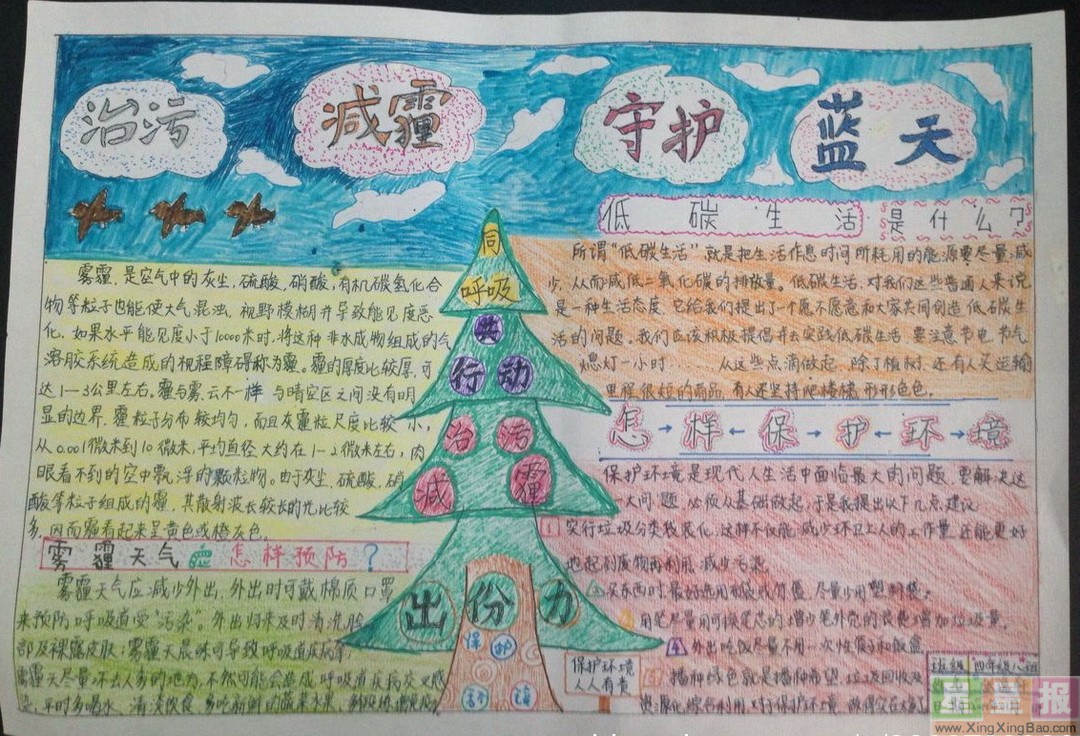 治污 减霾 守护 蓝天
低碳生活是什么?
所谓"低碳生活"就是把生活作息时间所耗用的能源要尽量减
少,从而减低二氧化碳的排放量。低碳生活,对我们这些普通人来说
是一种生活态度,它给我们提出了个愿不愿意和大家共同创造低碳生
活的问题。我们应该积极提倡并去实践低碳生活,要注意节电、节气
熄灯一小时……从这些点滴做起。除了植树,还有人买运输
里程很短的商品,有人还坚持爬楼梯,形形色色。
怎样保护环境
保护环境是现代人生活中面临最大的问题,要解决这
一大问题,必须从基础做起,于是我提出以下几点建议
1 实行垃圾分类袋装化,这样不仅能减少环卫工人的工作量,还能更好
地起到废物再利用,减少污染。
2 买东西时,最好选用布袋或竹篮,尽量少用塑料袋。
3 用笔尽量用可换笔芯的,增少笔外壳的浪费增加垃圾量。
4 外出吃饭尽量不用一次性筷子和饭盒
播种绿色就是播种希望,垃圾回收及
雾霾,是空气中的灰尘,硫酸,硝酸,有机碳氢化合
物等粒子也能使大气混浊,视野模糊并导致能见度恶
化,如果水平能见度小于10000米时,将这种非水成物组成的气
溶胶系统造成的视程障碍称为霾。霾的厚度比较厚,可
达1-3公里左右。霾与雾、云不一样,与晴空区之间没有明
显的边界,霾粒子分布较均匀,而且灰霾粒尺度比较小,
从0.001微米到10微米,平均直径大约在1-2微米左右,肉
眼看不到的空中飘浮的颗粒物。由于灰尘、硫酸、硝
酸等粒子组成的霾,其散射波长较长的光比较
多,因而霾看起来呈黄色或橙灰色。
雾霾天气怎样预防?
雾霾天气应减少外出,外出时可戴棉质口罩
来预防呼吸道受"污染"。外出归来及时清洗脸
部及裸露皮肤;雾霾天晨咏可导致呼吸道疾病等
雾霾天尽量不去人多的地方,不然可能会造成呼吸道疾病交叉感
染,平时多喝水,清淡饮食,多吃新鲜的蔬菜水果
同
呼吸
共
行动
治污
减霾
出份力
保护
保护环境
人人有责
班级 四年级八班
星星报
www.XingXingBao.com